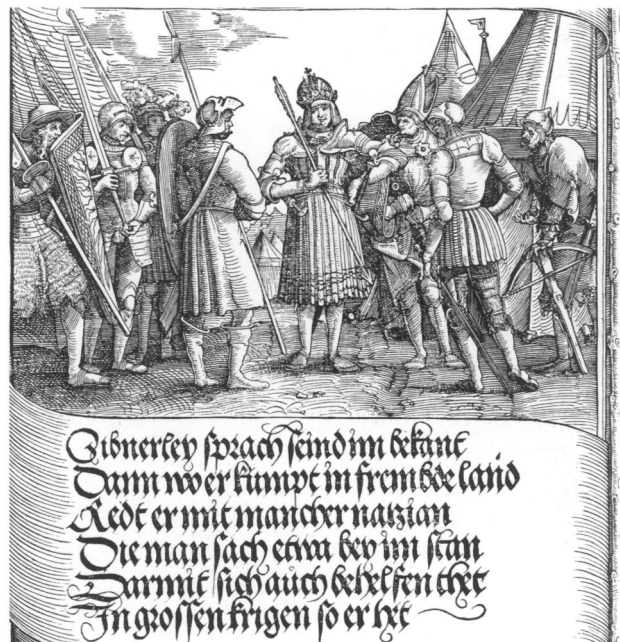 Sibnerley sprach seind im bekant
Dann wo er kumpt in frembde land
Redt er mit mancher natzian
Die man sach etwa bey im stan
Darmit sich auch behelffen thet
In grossen krigen so er het